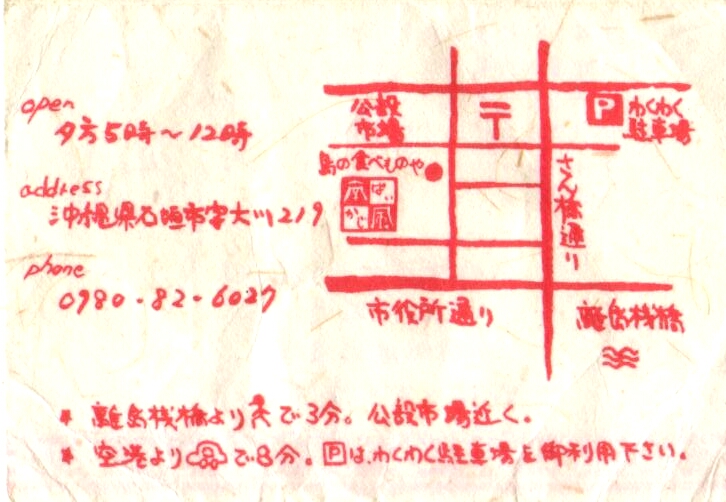 open
夕方5時～12時
address
沖縄県石垣市字大川219
phone
0980-82-6027
公設
市場
〒
P わくわく
駐車場
島の食べものや
南 ぱい
かじ 風
さん橋通り
市役所通り
離島桟橋
* 離島桟橋より で3分。公設市場近く。
* 空港より で8分。Pは、わくわく駐車場を御利用下さい。